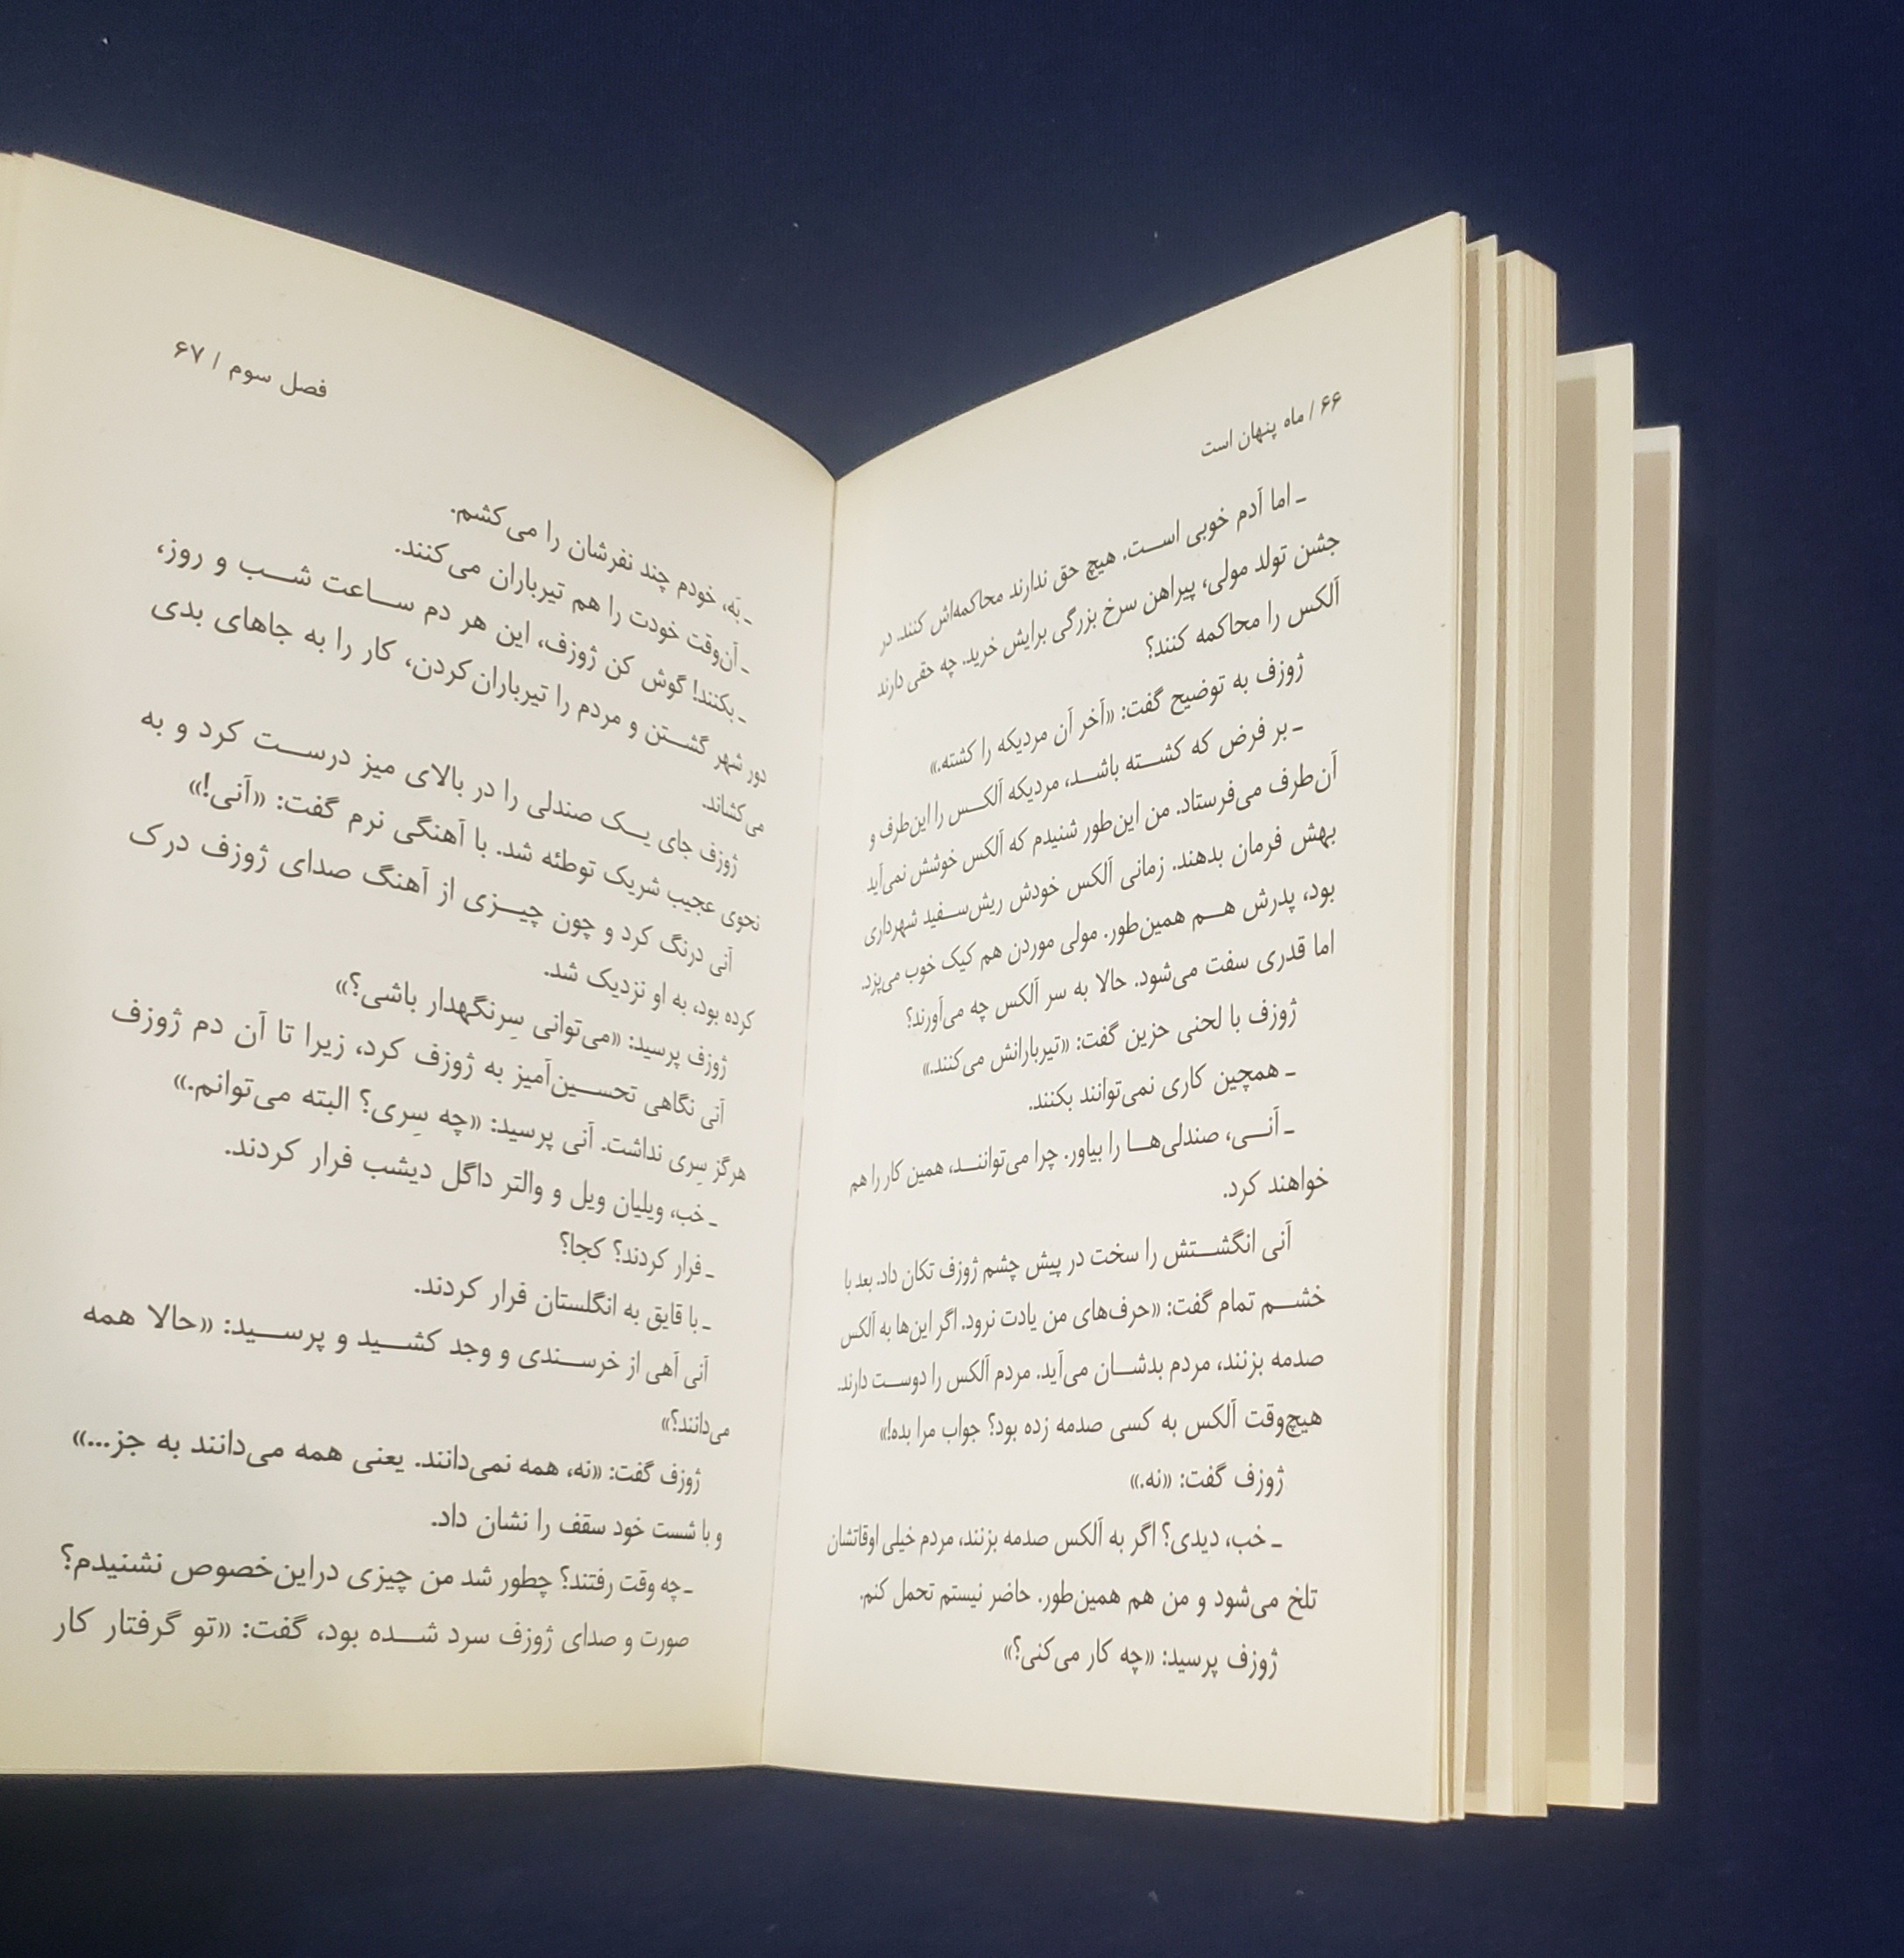 ۶۶ / ماه پنهان است
ـ اما آدم خوبی است. هیچ حق ندارند محاکمه‌اش کنند. در
جشن تولد مولی، پیراهن سرخ بزرگی برایش خرید. چه حقی دارند
آلکس را محاکمه کنند؟
ژوزف به توضیح گفت: «آخر آن مردیکه را کشته.»
ـ بر فرض که کشته باشد، مردیکه آلکس را این‌طرف و
آن‌طرف می‌فرستاد. من این‌طور شنیدم که آلکس خوشش نمی‌آید
بهش فرمان بدهند. زمانی آلکس خودش ریش‌سفید شهرداری
بود، پدرش هم همین‌طور. مولی موردن هم کیک خوب می‌پزد.
اما قدری سفت می‌شود. حالا به سر آلکس چه می‌آورند؟
ژوزف با لحنی حزین گفت: «تیربارانش می‌کنند.»
ـ همچین کاری نمی‌توانند بکنند.
ـ آنی، صندلی‌ها را بیاور. چرا می‌توانند، همین کار را هم
خواهند کرد.
آنی انگشتش را سخت در پیش چشم ژوزف تکان داد. بعد با
خشم تمام گفت: «حرف‌های من یادت نرود. اگر این‌ها به آلکس
صدمه بزنند، مردم بدشان می‌آید. مردم آلکس را دوست دارند.
هیچ‌وقت آلکس به کسی صدمه زده بود؟ جواب مرا بده!»
ژوزف گفت: «نه.»
ـ خب، دیدی؟ اگر به آلکس صدمه بزنند، مردم خیلی اوقاتشان
تلخ می‌شود و من هم همین‌طور. حاضر نیستم تحمل کنم.
ژوزف پرسید: «چه کار می‌کنی؟»
فصل سوم / ۶۷
ـ بَه، خودم چند نفرشان را می‌کشم.
ـ آن‌وقت خودت را هم تیرباران می‌کنند.
ـ بکنند! گوش کن ژوزف، این هر دم ساعت شب و روز،
دور شهر گشتن و مردم را تیرباران‌کردن، کار را به جاهای بدی
می‌کشاند.
ژوزف جای یک صندلی را در بالای میز درست کرد و به
نحوی عجیب شریک توطئه شد. با آهنگی نرم گفت: «آنی!»
آنی درنگ کرد و چون چیزی از آهنگ صدای ژوزف درک
کرده بود، به او نزدیک شد.
ژوزف پرسید: «می‌توانی سِرنگهدار باشی؟»
آنی نگاهی تحسین‌آمیز به ژوزف کرد، زیرا تا آن دم ژوزف
هرگز سِری نداشت. آنی پرسید: «چه سِری؟ البته می‌توانم.»
ـ خب، ویلیان ویل و والتر داگل دیشب فرار کردند.
ـ فرار کردند؟ کجا؟
ـ با قایق به انگلستان فرار کردند.
آنی آهی از خرسندی و وجد کشید و پرسید: «حالا همه
می‌دانند؟»
ژوزف گفت: «نه، همه نمی‌دانند. یعنی همه می‌دانند به جز...»
و با شست خود سقف را نشان داد.
ـ چه وقت رفتند؟ چطور شد من چیزی دراین‌خصوص نشنیدم؟
صورت و صدای ژوزف سرد شده بود، گفت: «تو گرفتار کار